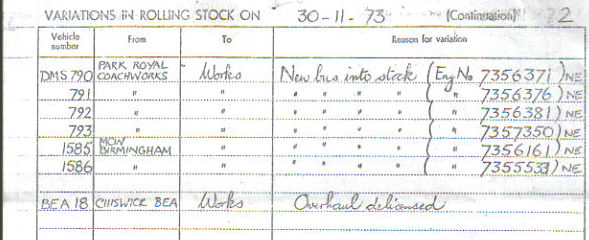 VARIATIONS IN ROLLING STOCK ON 30-11-73 (Continuation) 2
Vehicle number From To Reason for variation
DMS 790 PARK ROYAL COACHWORKS Works New bus into stock (Eng No 7356371) NE
791 " " " " " " ( " 7356376) NE
792 " " " " " " ( " 7356381) NE
793 " " " " " " ( " 7357350) NE
1585 MCW BIRMINGHAM " " " " " ( " 7356161) NE
1586 " " " " " " ( " ) NE
BEA 18 CHISWICK BEA Works Overhaul delicensed